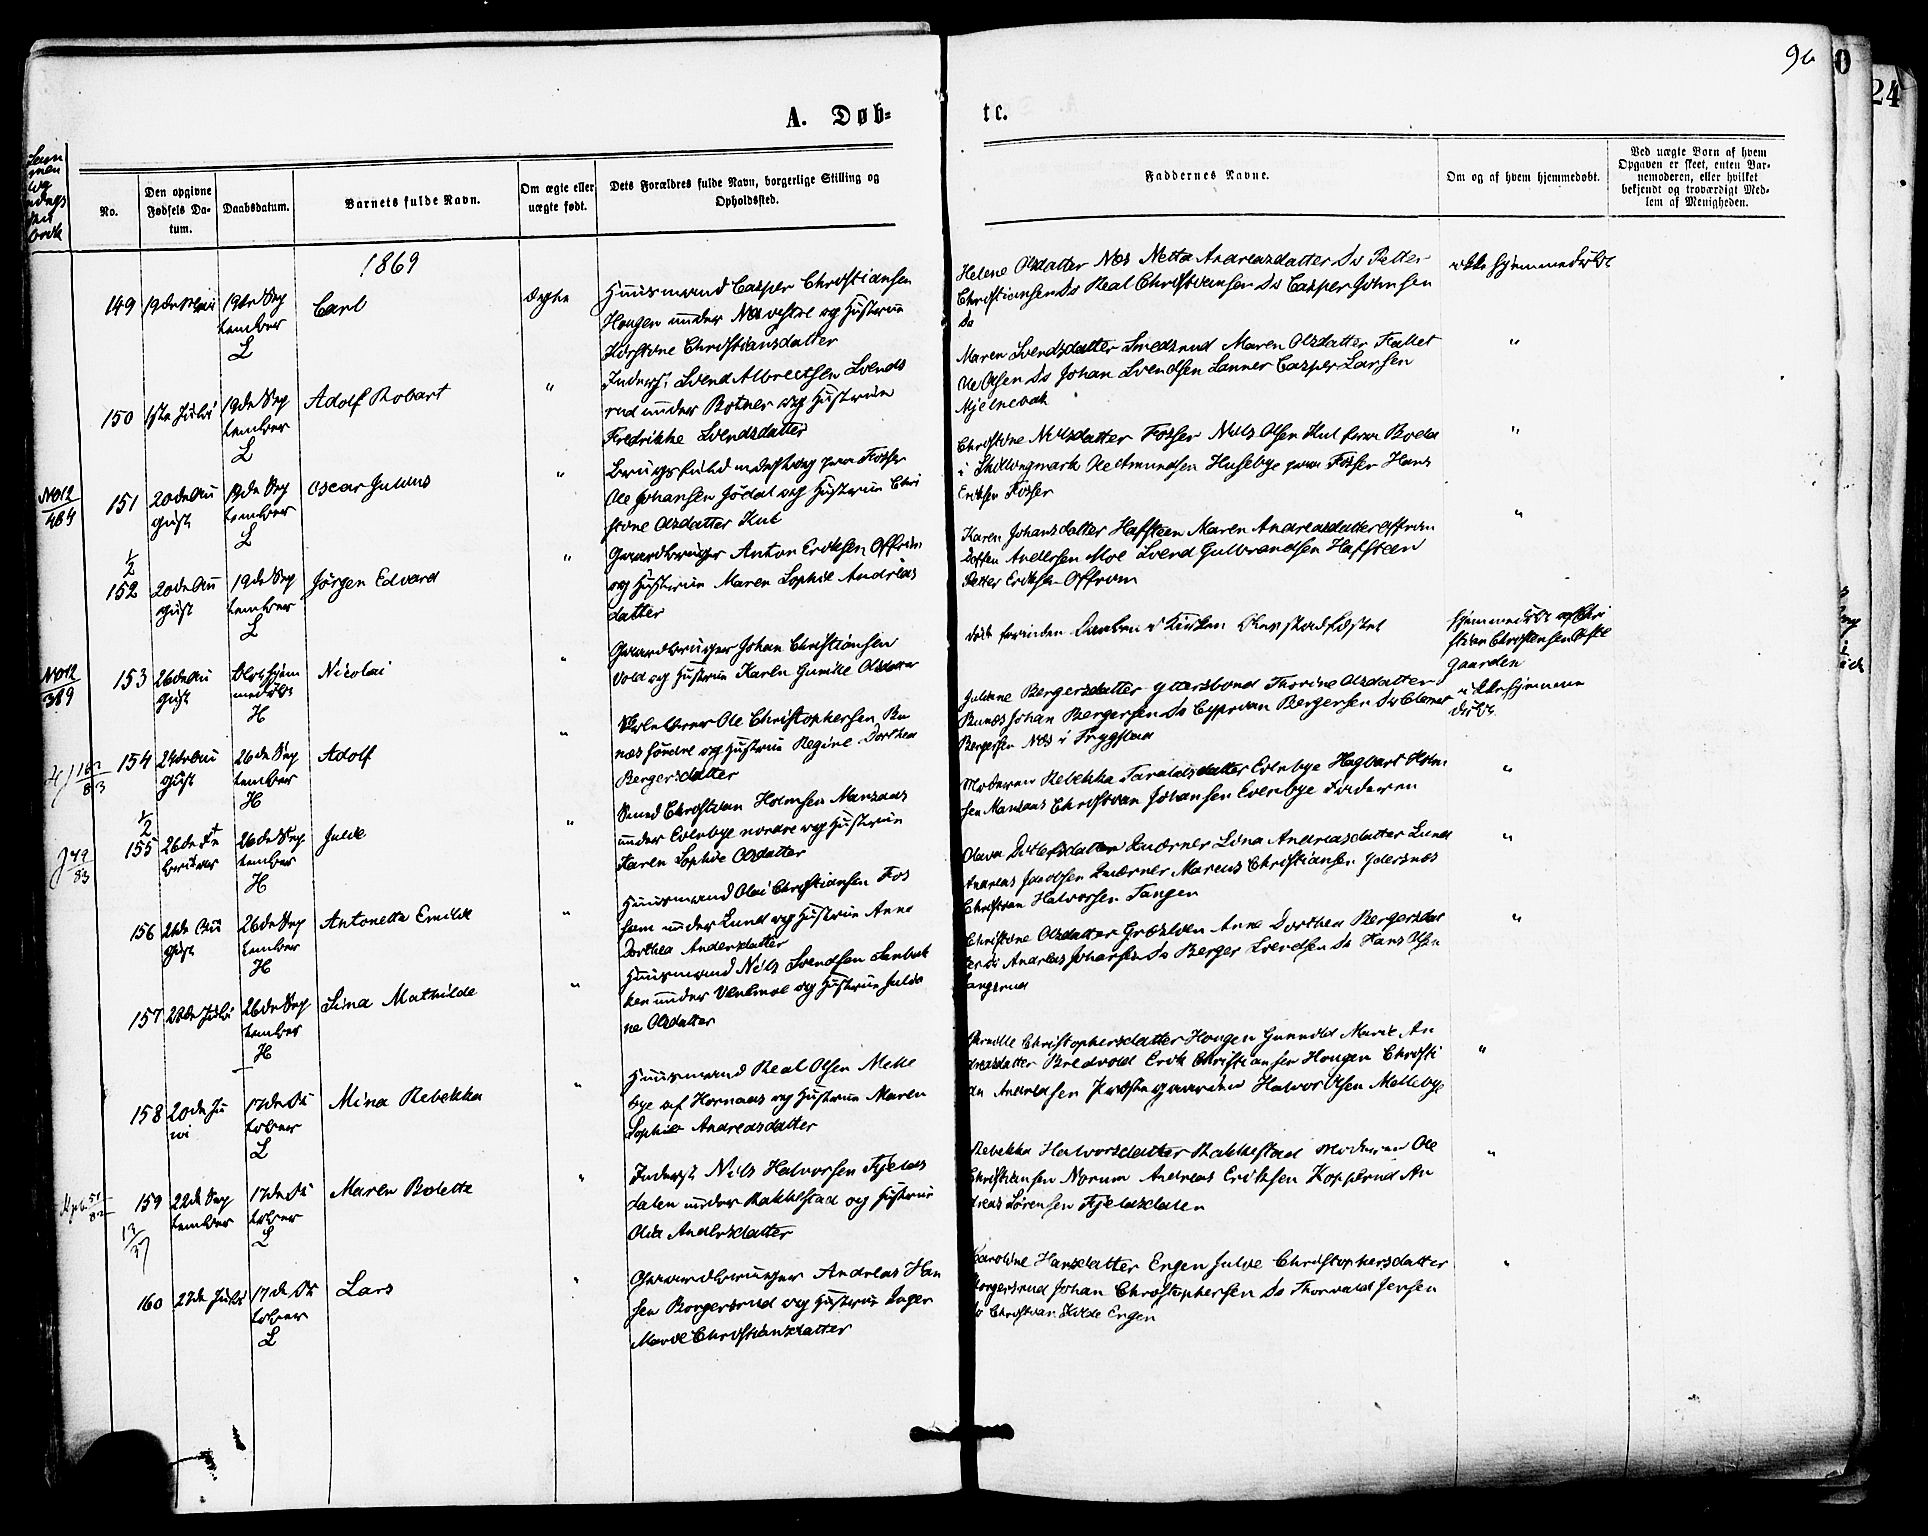 96
A. Døb-
te.
No.
Den opgivne Fødsels Da-
tum.
Daabsdatum.
Barnets fulde Navn.
Om ægte eller
uægte født.
Dets Forældres fulde Navn, borgerlige Stilling og
Opholdssted.
Faddernes Navne.
Om og af hvem hjemmedøbt.
Ved uægte Børn af hvem
Opgaven er skeet, enten Bar-
nemoderen, eller hvilket
bekjendt og troværdigt Med-
lem af Menigheden.
1869
149 19de Mai 19de Sep
tember
L
Carl
Ægte
Huusmand Casper Christiansen
Haugen under Næs vestre og Hustrue
Kirstine Christiansdatter
Helene Olsdatter Næs Netta Andreasdatter Do Petter
Christiansen Do Real Christiansen Do Casper Johnsen
Do
ikke hjemmedøbt
150 1ste Juli 19de Sep
tember
L
Adolf Robart
"
Inderst Svend Albrectsen Svends
rud under Botner og Hustrue
Fredrikke Svendsdatter
Maren Svendsdatter Smedsrud Maren Olsdatter Fallet
Ole Olsen Do Johan Svendsen Sanner Casper Larsen
Mjelnebak
"
No 12
484
151 20de Au
gust
19de Sep
tember
L
Oscar Julius
"
Brugsfuldmægtig paa Fosser
Ole Johansen Jødal og Hustrue Chri
stine Olsdatter Kul
Christine Nilsdatter Fosser Nils Olsen Kul paa Bodal
i Skillingmark Ole Amundsen Husebye paa Fosser Hans
Eriksen Fosser
"
1/2
152 20de Au
gust
19de Sep
tember
L
Jørgen Edvard
"
Gaardbruger Anton Eriksen Offrim
og Hustrue Maren Sophie Andreas
datter
Karen Johansdatter Hafsteen Maren Andreasdatter Offrim
Andersen Moe Svend Gulbrandsen Hafsteen
Petter Eriksen Offrim
"
No 12
389
153 26de Au
gust
Blot hjem
medøbt
H
Nicolai
"
Gaardbruger Johan Christiansen
Vold og Hustrue Karen Gunilde Olsdatter
døde forinden Daaben i Kirken
hjemmedøbt af Chri
stian Christensen
gaarden
154 24de Au
gust
26de Sep
tember
H
Adolf
"
Ole Christophersen Bu
næs søndre og Hustrue Regine Dorthea
Bergersdatter
Juliane Bergersdatter Ytterbond Thorine Olsdatter
Bunæs Johan Bergersen Do Cyprian Bergersen Do
Bergersen Næs i Trygstad
ikke hjemme
døbt
1/2
J 49
83
155 26de Fe
bruar
26de Sep
tember
H
Julie
"
Smed Christian Holmsen Mansaas
under Evenbye nordre og Hustrue
Karen Sophie Olsdatter
Moderen Rebekka Taraldsdatter Evenbye Hagbart Holm
sen Mansaas Christian Johansen Evenbye Faderen
"
156 21de Au
gust
26de Sep
tember
H
Antonetta Emilie
"
Huusmand Olai Christiansen Fos
sum under Lund og Hustrue Anne
Dorthea Andersdatter
Olava Dittersdatter Kværner Lina Andreasdatter Lund
Andreas Jacobsen Kværner Marcus Christiansen Ydersnæs
Christian Halvorsen Tangen
"
157 28de Juli 26de Sep
tember
H
Lina Mathilde
"
Huusmand Nils Svendsen Sanbak
ken under og Hustrue Julia
ne Olsdatter
Christine Olsdatter Græslien Anne Dorthea Bergersdat
ter Do Andreas Johansen Do Berger Svendsen Do Hans Olsen
Langsrud
"
158 20de Ju
ni
17de Oc
tober
L
Mina Rebekka
"
Huusmand Real Olsen Melle
bye af Hornaas og Hustrue Maren
Sophie Andreasdatter
Pernille Christophersdatter Haugen Gunnild Marie An
dreasdatter Bredvold Erik Christiansen Haugen Christi
an Andreasen Præstegaarden Halvor Olsen Mellebye
"
159 22de Sep
tember
17de Oc
tober
L
Maren Bolette
"
Inderst Nils Halvorsen Fjelds
dalen under Rakkestad og Hustrue
Olia Andersdatter
Rebekka Halvorsdatter Rakkestad Moderen Ole
Christiansen Norum Andreas Eriksen Kopperud An
dreas Sørensen Fjeldsdalen
"
13
37
160 22de Juli 17de Oc
tober
L
Lars
"
Gaardbruger Andreas Han
sen Borgersrud og Hustrue Inger
Marie Christiansdatter
Karoline Hansdatter Engen Julie Christophersdatter
Borgersrud Johan Christophersen Do Thorvald Jensen
Do Christian Kilde Engen
"
24